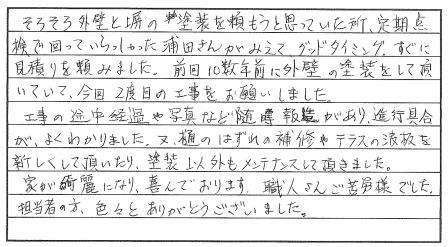 そろそろ外壁と塀の塗装を頼もうと思っていた所、定期点
検で回っていらっしゃった浦田さんがみえて、グッドタイミング。すぐに
見積りを頼みました。前回10数年前に外壁の塗装をして頂
いていて、今回2度目の工事をお願いしました。
工事の途中経過や写真など随時報告があり、進行具合
が、よくわかりました。又、樋のはずれの補修やテラスの波板を
新しくして頂いたり、塗装以外もメンテナンスして頂きました。
家が綺麗になり、喜んでおります。職人さんご苦労様でした。
担当者の方、色々とありがとうございました。